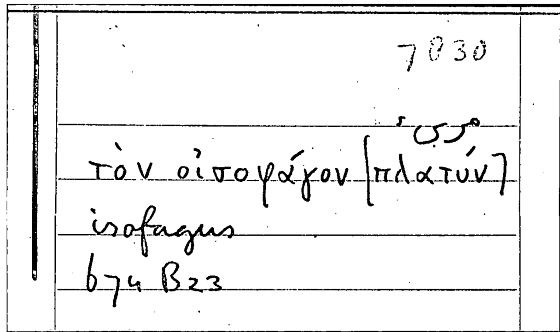 مرىء
τὸν οἰσοφάγον [πλατύν]
isofagus
674 B23